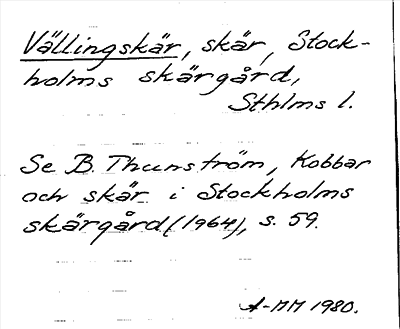 Vällingskär, skär, Stock-
holms skärgård,
Sthlms l.
Se B. Thunström, Kobbar
och skär i Stockholms
skärgård (1964), s. 59.
A-MM 1980.